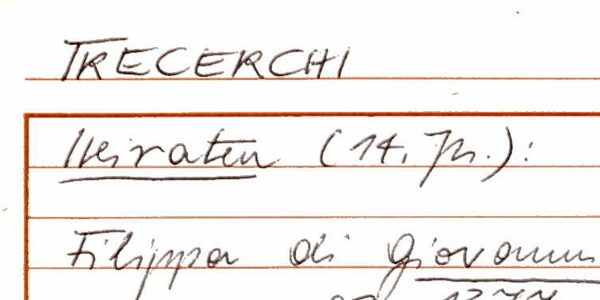 TRECERCHI
Heiraten (14. Jh.):
Filippa di Giovanni